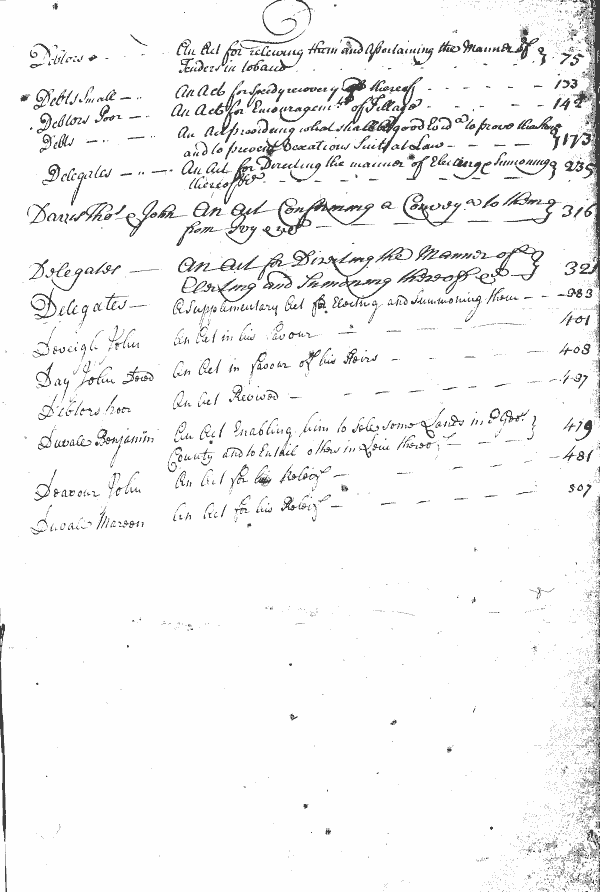 Debtors - An Act for relieving them and Ascertaining the Manner of } 75
Tenders in tobacco
Debts Small - An Act for Speedy recovery thereof - - - 133
Debtors Poor - An Act for Encouragemt. of Tillage - - - 142
Debts - An Act providing what shall be good Evid. to prove
and to prevent Vexatious Suits at Law - } 173
Delegates - An Act for Directing the manner of Electing & Sumoning } 235
thereof &c
Thos. & John An Act Confirming a Convey. to them } 316
from
Delegates - An Act for Directing the Manner of } 321
Electing and Sumoning thereof &c
Delegates - A Supplimentary Act for Electing and summoning them - - 383
Deveigh John An Act in his Favour - 401
Day John Dec'ed An Act in favour of his Heirs - - 408
Debtors Poor An Act Revived - - - 437
Duvale Benjamin An Act Enabling him to Sell some Lands in P Geo. } 479
County and to Entail others in Leiu thereof
Deavour John An Act for his Releif - - - 481
Duvale Mareen An Act for his Releif - - - 507